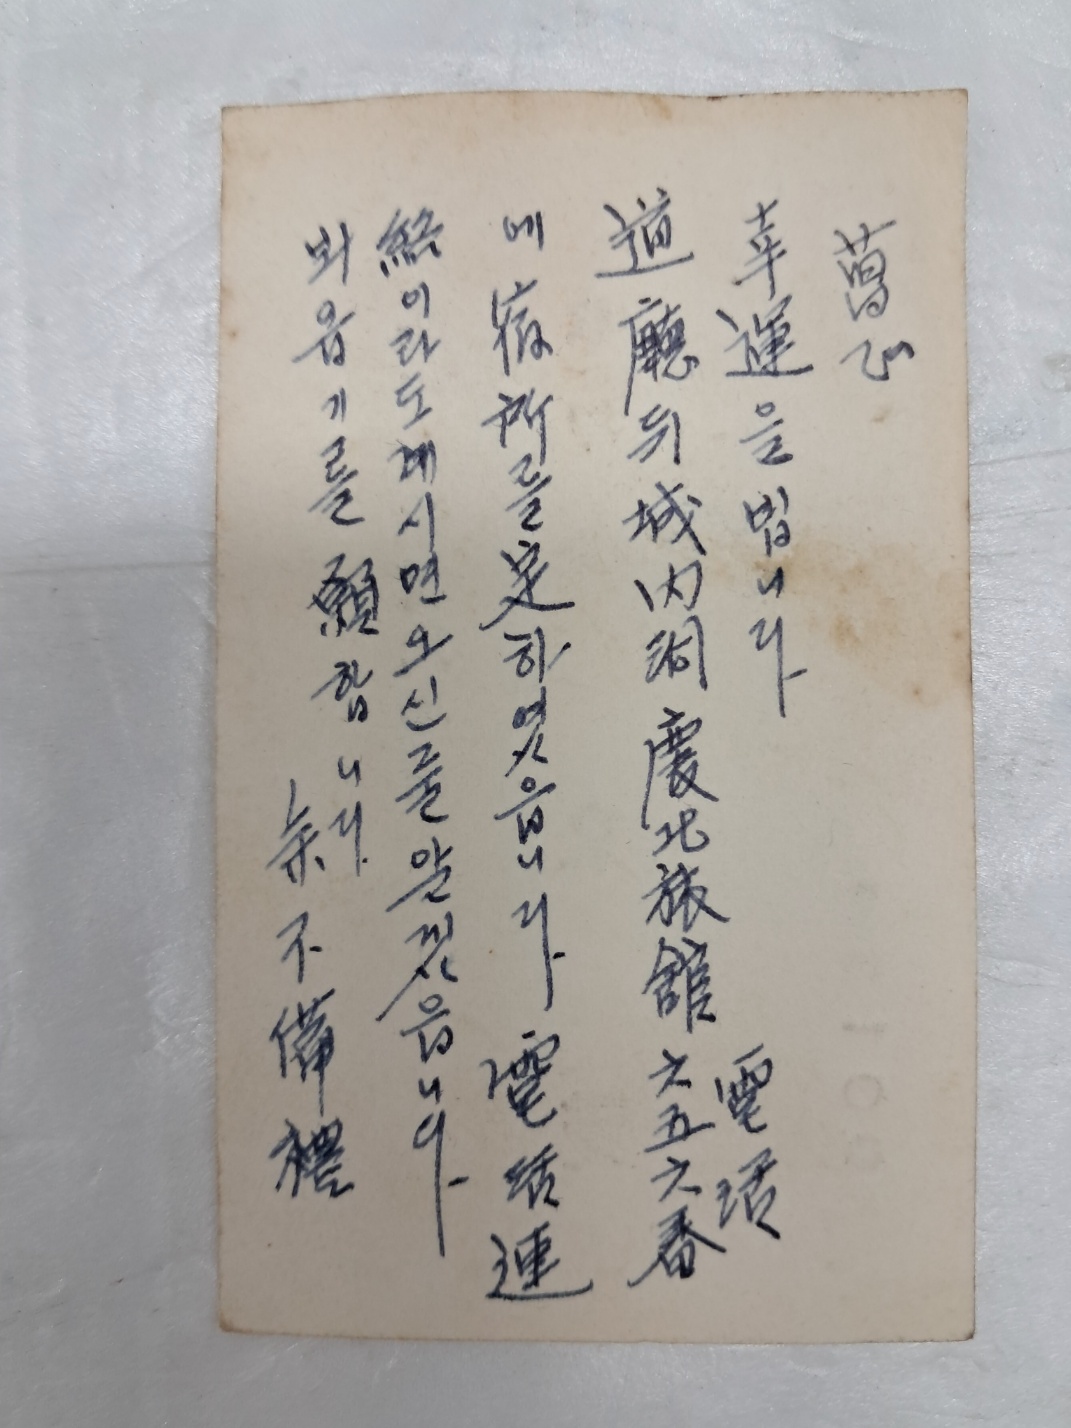 幸運을 빕니다
道廳뒤 城內洞 慶北旅館 電話 六五六番
에 宿所를 定하엿읍니다 電話連
絡이라도 해시면 오신줄 알겟읍니다
뵈읍기를 願합니다
余不備禮